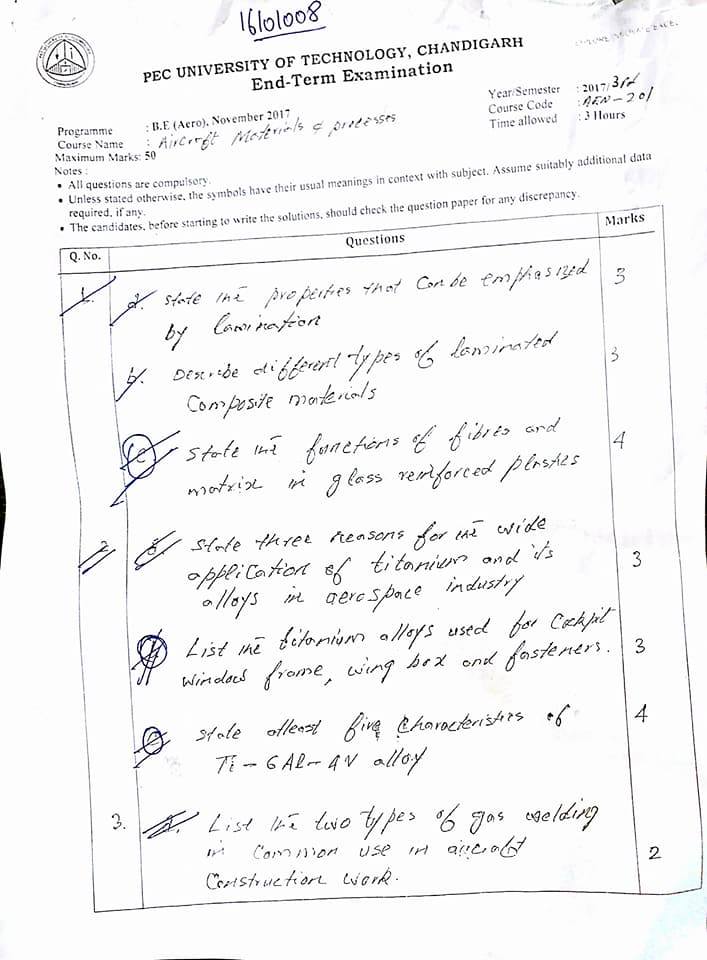 16101008
PEC UNIVERSITY OF TECHNOLOGY, CHANDIGARH
End-Term Examination
Programme : B.E (Aero), November 2017
Year/Semester : 2017/3rd
Course Name : Aircraft Materials & processes
Course Code : AEN-201
Maximum Marks: 50
Time allowed : 3 Hours
Notes :
• All questions are compulsory.
• Unless stated otherwise, the symbols have their usual meanings in context with subject. Assume suitably additional data
required, if any.
• The candidates, before starting to write the solutions, should check the question paper for any discrepancy.
Q. No. Questions Marks
1. a. State the properties that can be emphasized 3
by lamination
b. Describe different types of laminated 3
Composite materials
c State the functions of fibres and 4
matrix in glass reinforced plastics
2. State three reasons for the wide
application of titanium and its 3
alloys in aerospace industry
List the titanium alloys used for Cockpit
window frame, wing box and fasteners. 3
c State atleast five characteristics of 4
Ti-6Al-4V alloy
3. a. List the two types of gas welding
in common use in aircraft 2
Construction work.